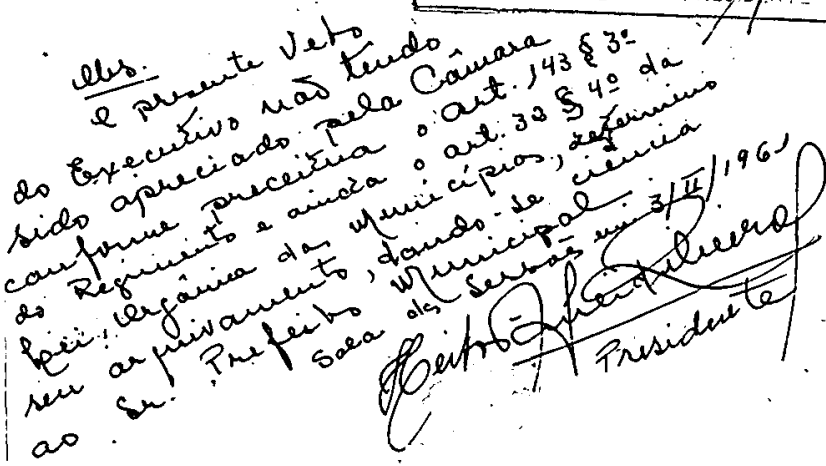 Obs.
O presente Veto
do Executivo não tendo
sido apreciado pela Câmara
conforme preceitua o art. 143 § 3º
do Regimento e ainda o art. 33 § 4º da
Lei Orgânica dos Municípios, determino
seu arquivamento, dando-se ciência
ao Sr. Prefeito Municipal.
Sala das Sessões em 3/II/1961
Presidente